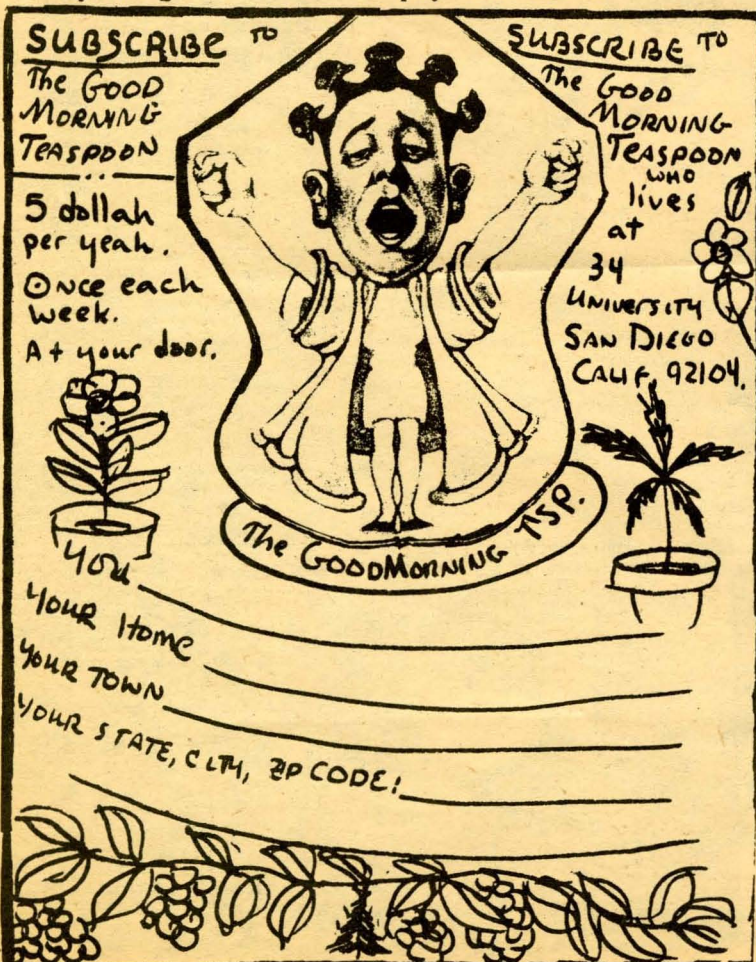 SUBSCRIBE TO
The GOOD
MORNING
TEASPOON
5 dollah
per yeah.
Once each
week.
At your door.
SUBSCRIBE TO
The GOOD
MORNING
TEASPOON
WHO
lives
at
34
UNIVERSITY
SAN DIEGO
CALIF. 92104.
The GOODMORNING TSP.
YOU
YOUR HOME
YOUR TOWN
YOUR STATE, CITY, ZIP CODE: